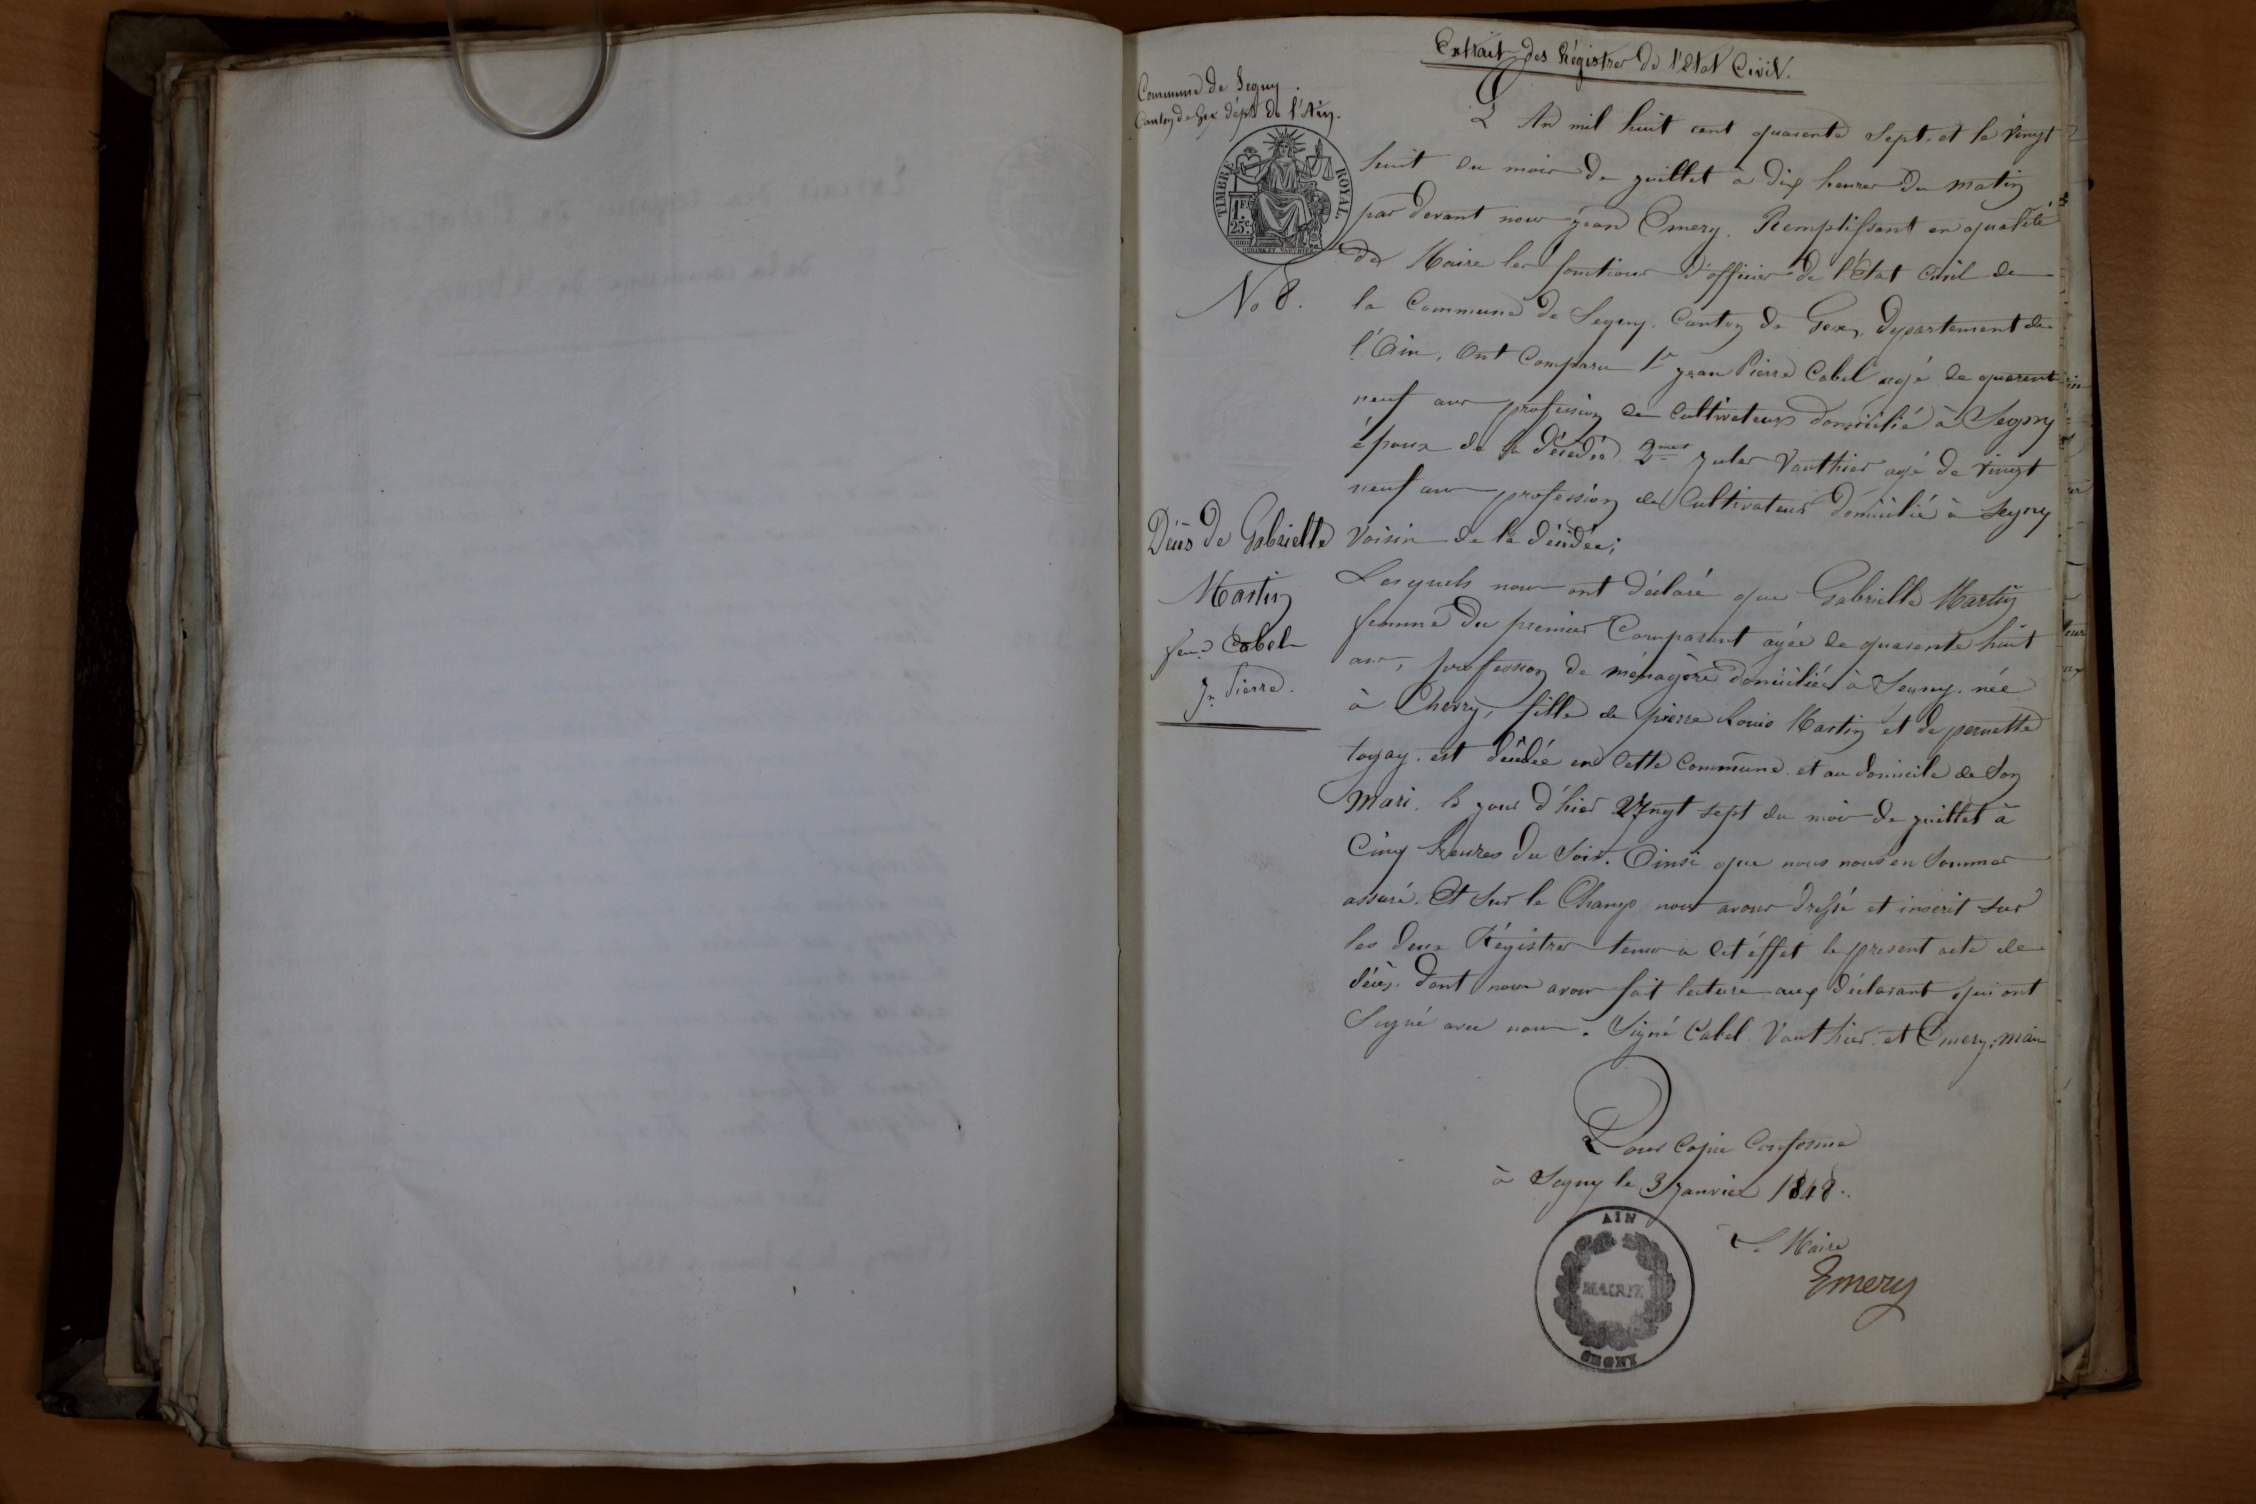 Extrait des Régistres de l'Etat Civil.
Commune de Segny.
Canton de Gex dép.t de l'Ain.
TIMBRE ROYAL
1 F.
25 c.
No 8.
L'An mil huit cent quarente sept, et le vingt
huit du mois de juillet à dix heures du matin
par devant nous jean Emery. Remplissant en qualité
de Maire les fonctions d'officier de l'Etat Civil de
la Commune de Segny. Canton de Gex, département de
l'Ain, Ont Comparu 1r jean Pierre Cabel agé de quarent
neuf ans profession de Cultivateurs domicilié à Segny
époux de la décédée. 2me Jules Vauthier agé de vingt
neuf ans profession de Cultivateurs domicilié à Segny
voisin de la décédée;
Décès de Gabrielle
Martin
fem. Cabel
Jn Pierre.
Lesquels nous ont déclaré que Gabrielle Martin
femme du premier Comparant agée de quarente huit
ans, profession de ménagère domiciliée à Segny. née
à Chevry, fille de pierre Louis Martin et de pernette
est décédée en Cette Commune et au domicile de Son
Mari. le jour d'hier vingt sept du mois de juillet à
Cinq heures du Soir. Ainsi que nous nous en Sommes
assuré. Et Sur le Champ nous avons dressé et inscrit sur
les deux Régistres tenus a Cet éffet le présent acte de
décès. dont nous avons fait lecture aux déclarant qui ont
Signé avec nous. Signé Cabel Vauthier et Emery, mair
Pour Copie Conforme
à Segny le 3 janvier 1848.
Le Maire
Emery
AIN
MAIRIE
SEGNY